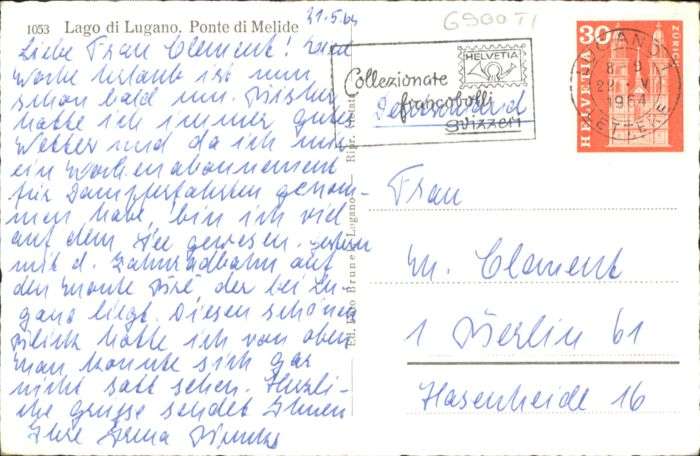 1053 Lago di Lugano. Ponte di Melide
21.5.64
G 900 TI
Liebe Frau Clement! Eine
Woche Urlaub ist nun
schon bald um. Bisher
hatte ich immer gutes
Wetter und da ich mir
ein Wochenabonnement
für Dampferfahrten genom-
men habe, bin ich viel
auf dem See gewesen. Gestern
mit d. Zahnradbahn auf
den Monte Brè der bei Lu-
gano liegt. Diesen schönen
Blick hatte ich von oben
man konnte sich gar
nicht satt sehen. Herzli-
che Grüsse sendet Ihnen
Ihre Irma
Ed. Brunel Lugano — Ripr. vietata
Collezionate
francobolli
svizzeri
HELVETIA
Deutschland
HELVETIA
30
ZÜRICH
LUGANO 1
1964
LETTERE
Frau
M. Clement
1 Berlin 61
Hasenheide 16